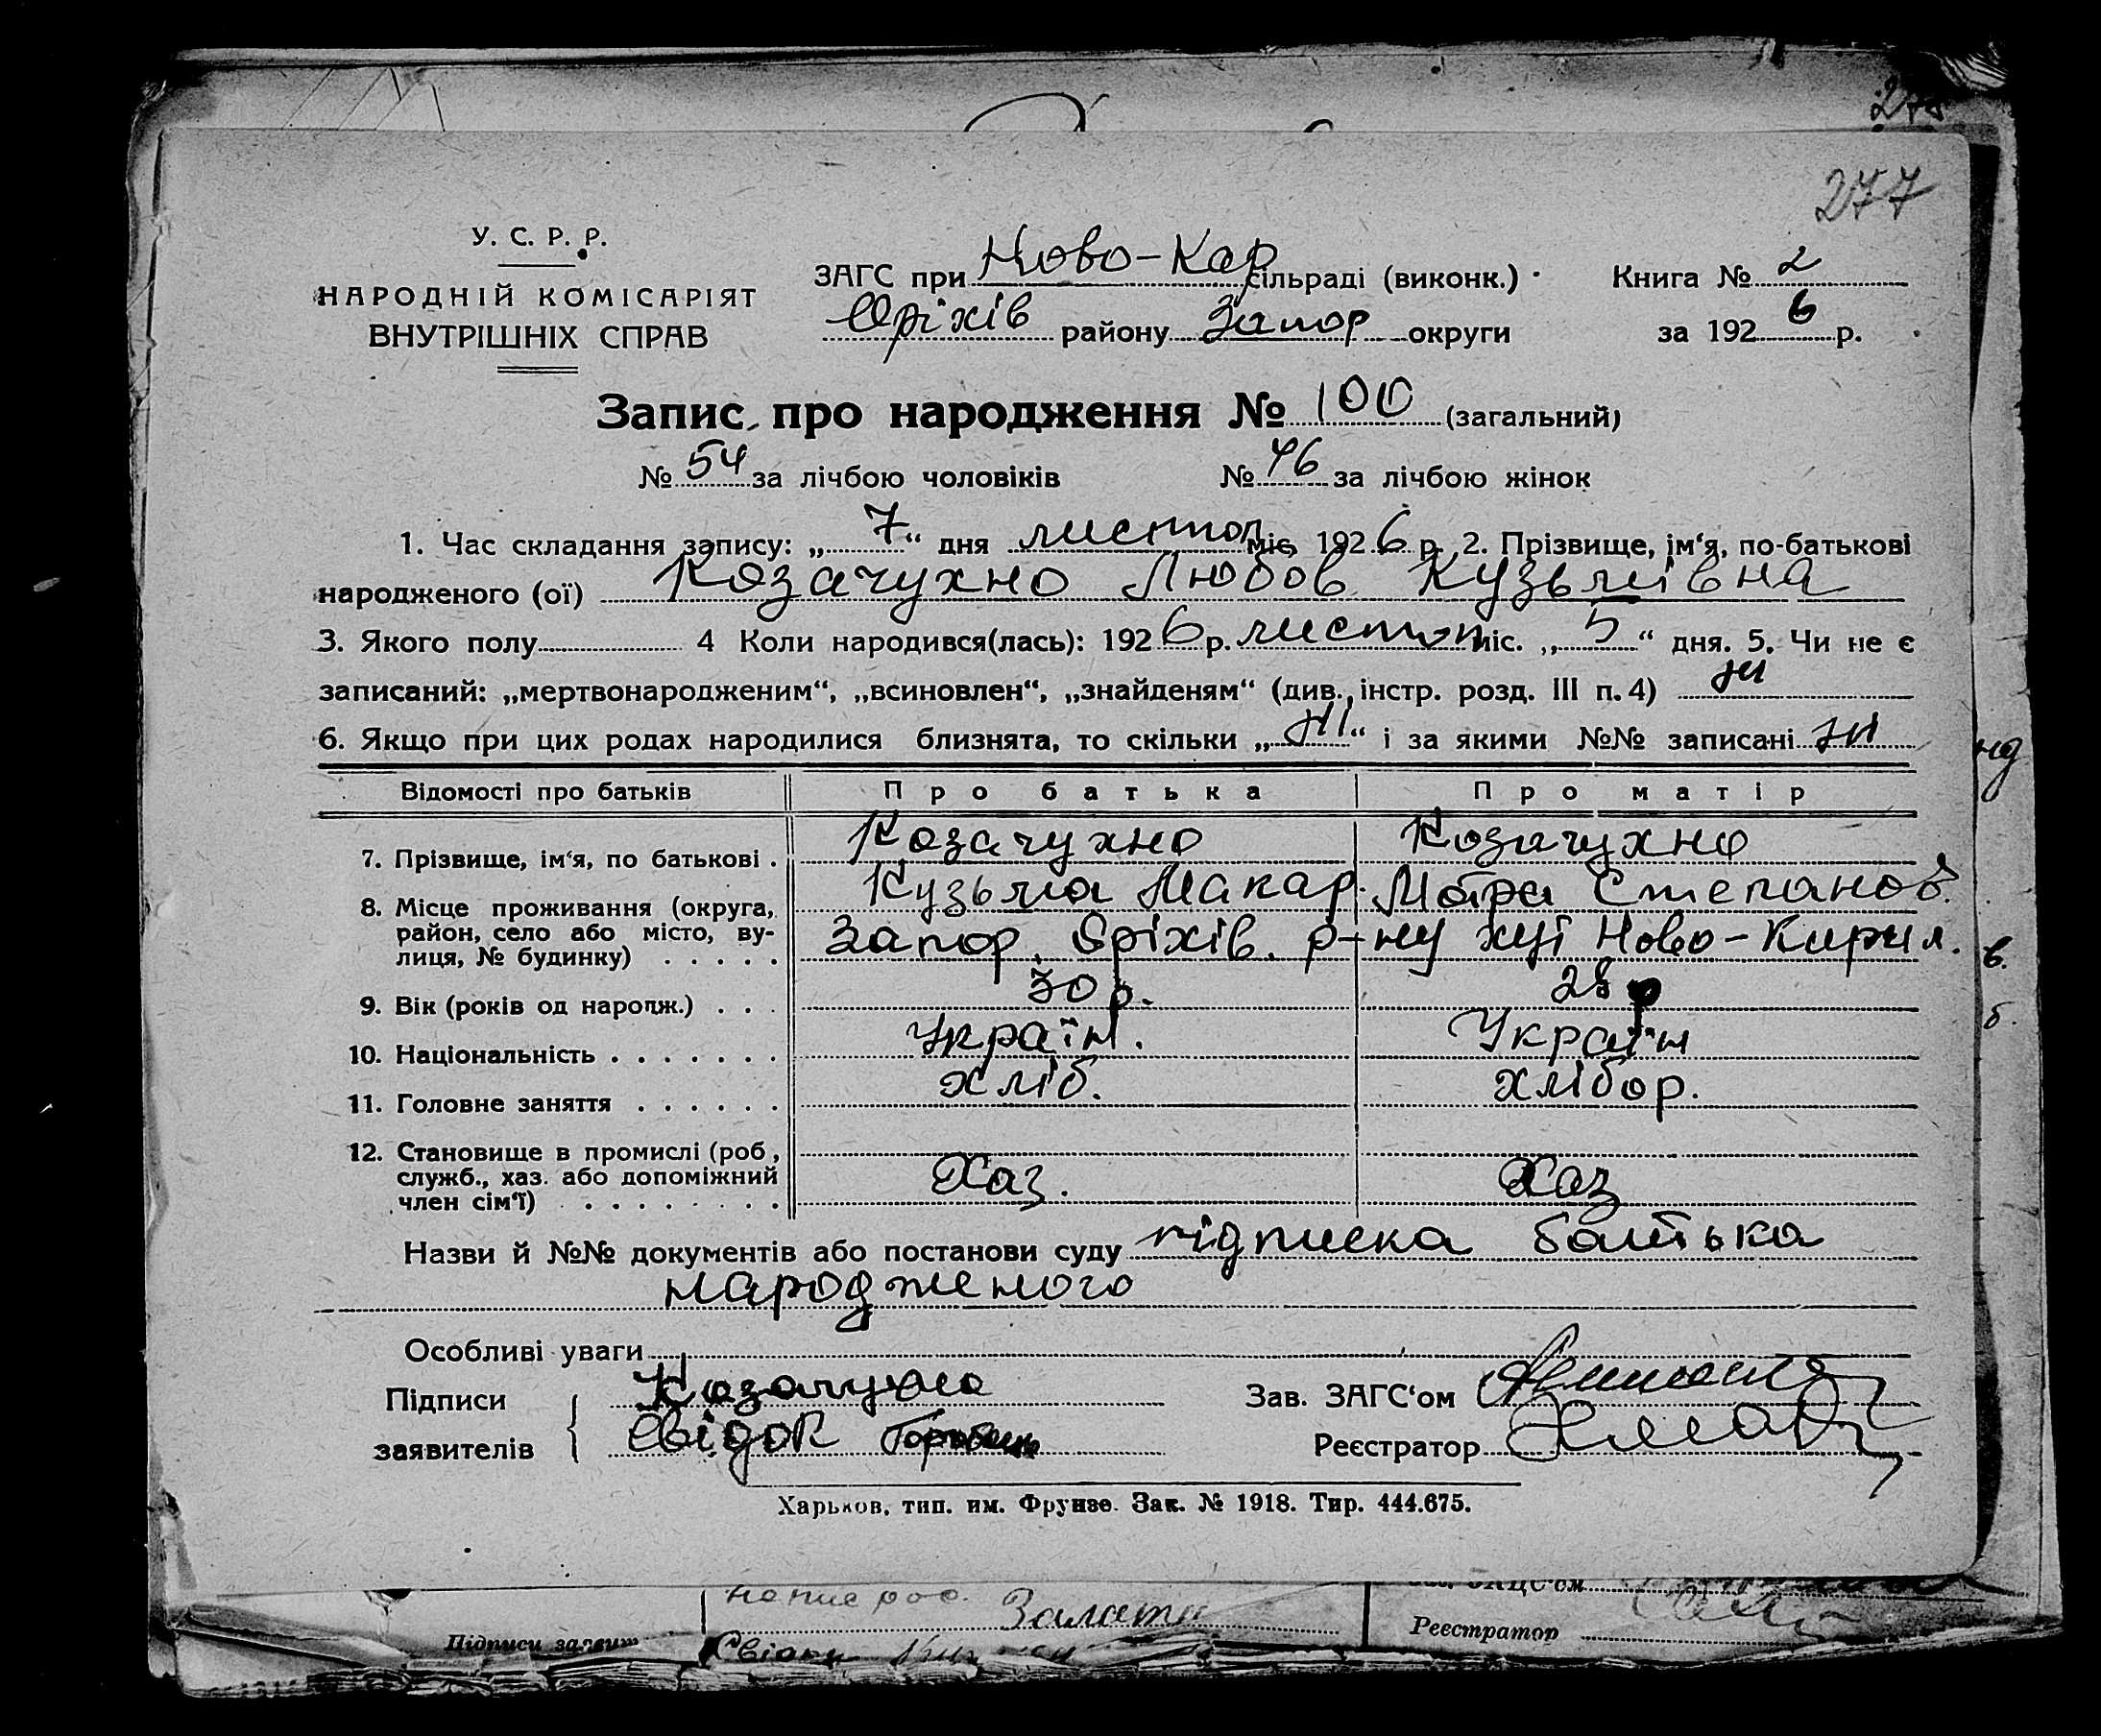 277
У. С. Р. Р.
НАРОДНІЙ КОМІСАРІЯТ
ВНУТРІШНІХ СПРАВ
ЗАГС при Ново-Кар сільраді (виконк.)
Книга № 2
Оріхів району Запор округи
за 1926 р.
Запис про народження № 100 (загальний)
№ 54 за лічбою чоловіків № 46 за лічбою жінок
1. Час складання запису: „7“ дня листоп міс. 1926 р. 2. Прізвище, ім‘я, по-батькові
народженого (ої) Козачухно Любов Кузьмівна
3. Якого полу 4 Коли народився(лась): 1926 р. листоп міс. „5“ дня. 5. Чи не є
записаний: „мертвонародженим“, „всиновлен“, „знайденям“ (див. інстр. розд. III п. 4) ні
6. Якщо при цих родах народилися близнята, то скільки „ні“ і за якими №№ записані ні
Відомості про батьків Про батька Про матір
7. Прізвище, ім‘я, по батькові . Козачухно Козачухно
Кузьма Макар. Мотря Степанов.
8. Місце проживання (округа,
район, село або місто, ву-
лиця, № будинку) . . . . . Запор. Оріхів. р-ну хут Ново-Кирил.
9. Вік (років од народж.) . . . 30 р. 28 р
10. Національність . . . . . . . Україн. Україн
11. Головне заняття . . . . . . хліб. хлібор.
12. Становище в промислі (роб,
служб., хаз. або допоміжний
член сім‘ї) . . . . . . . . Хаз. Хаз
Назви й №№ документів або постанови суду підписка батька
народженого
Особливі уваги
Підписи Козачухно Зав. ЗАГС‘ом
заявителів Свідок Реєстратор
Харьков, тип. им. Фрунзе. Зак. № 1918. Тир. 444.675.
Реєстратор